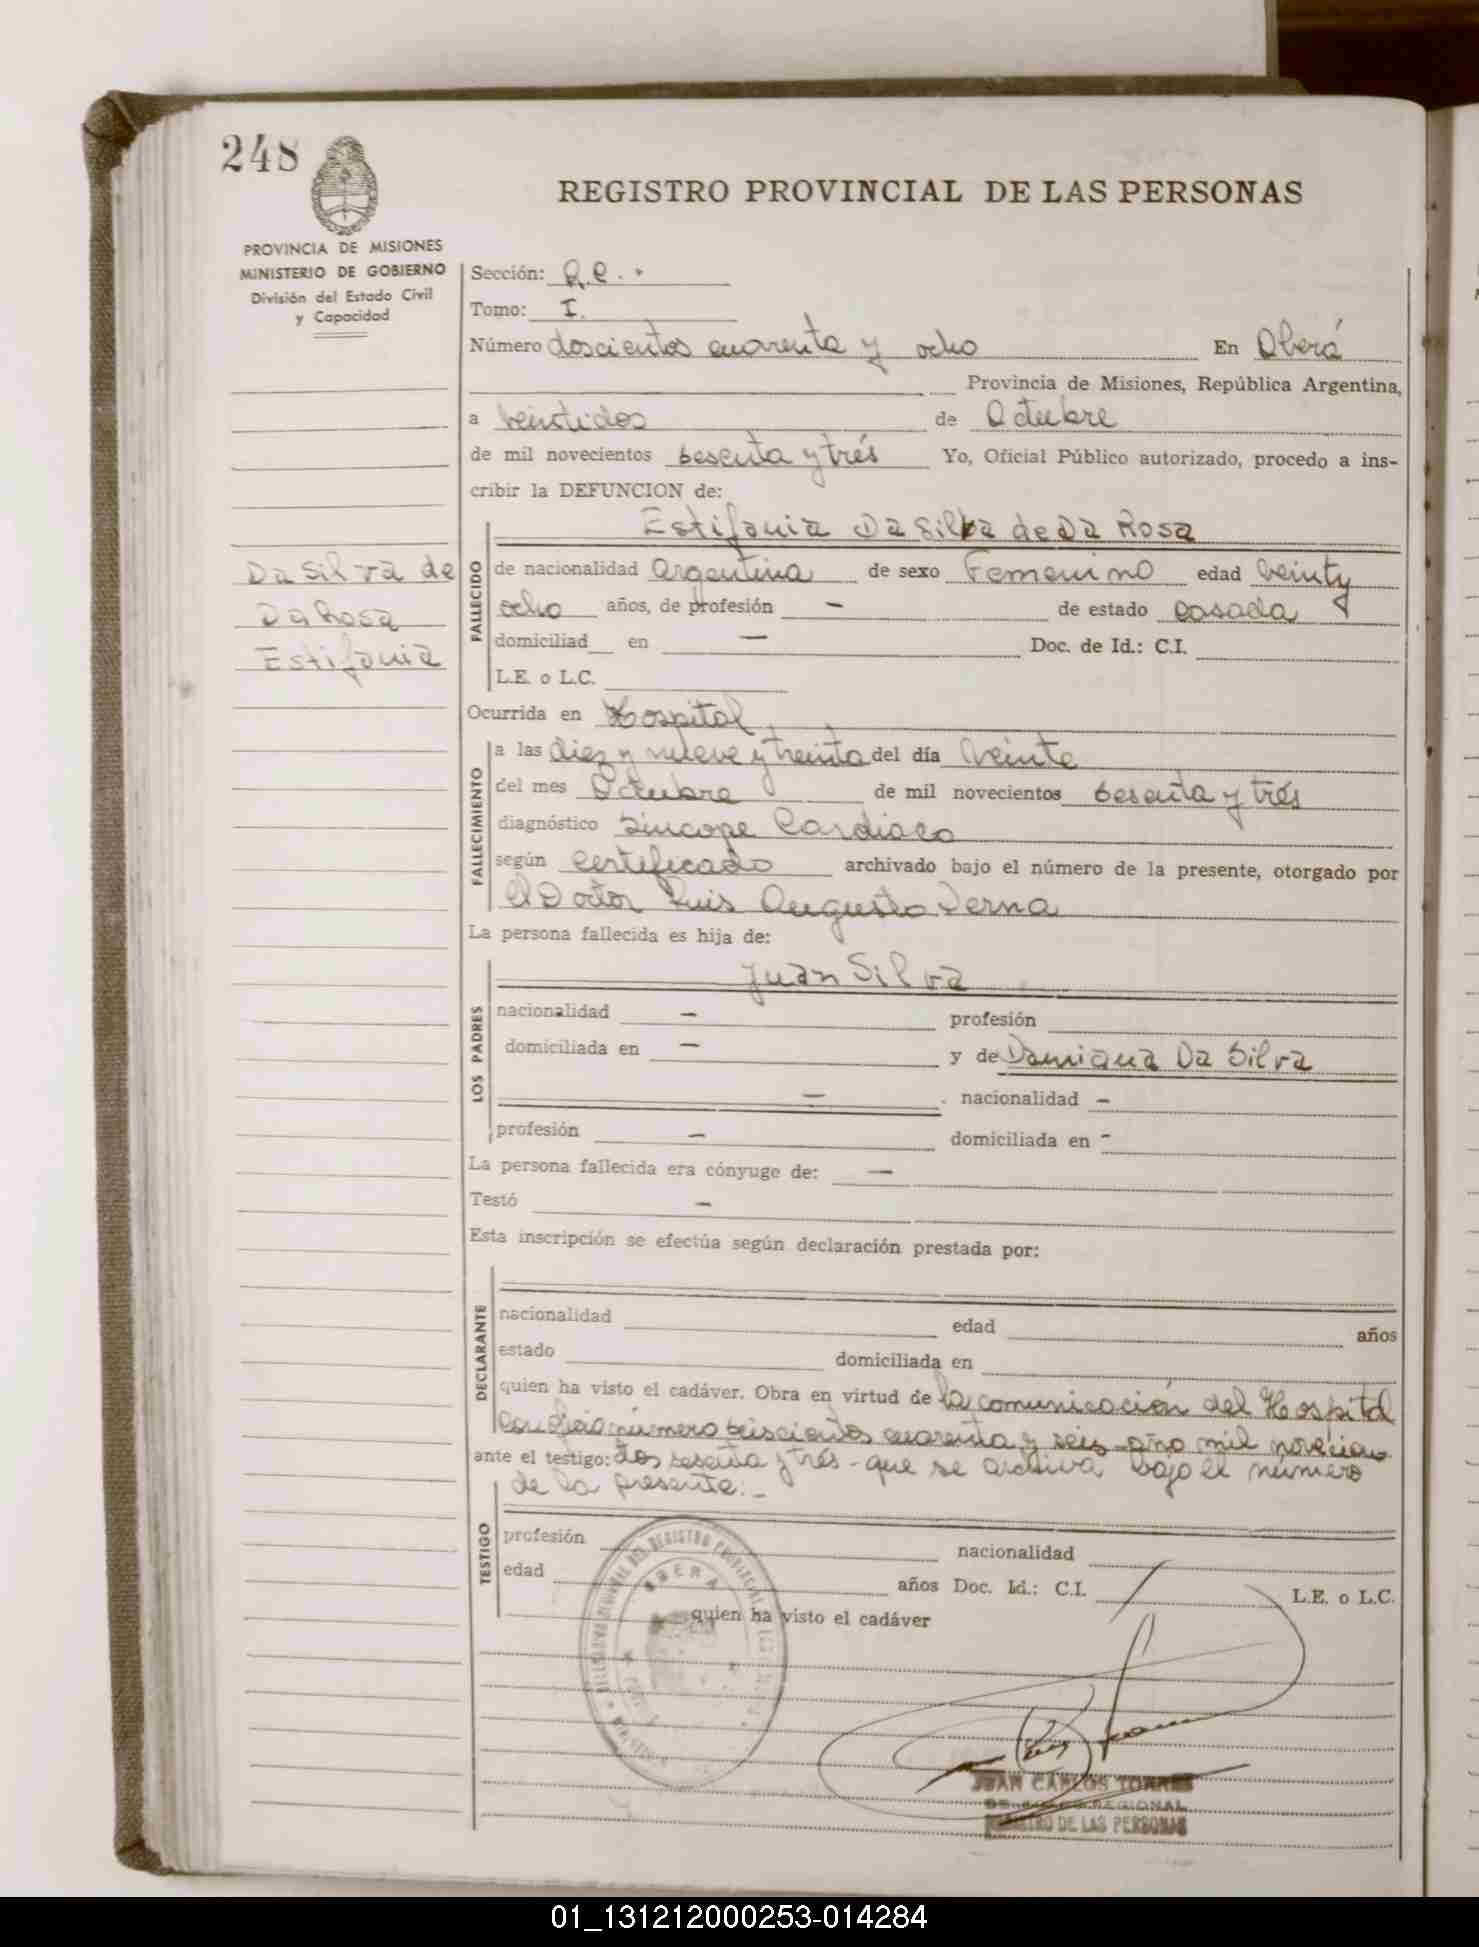 248
REGISTRO PROVINCIAL DE LAS PERSONAS
PROVINCIA DE MISIONES
MINISTERIO DE GOBIERNO
División del Estado Civil
y Capacidad
Sección: R.C.
Tomo: I.
Número doscientos cuarenta y ocho En Oberá
Provincia de Misiones, República Argentina,
a veintidos de Octubre
de mil novecientos sesenta y trés Yo, Oficial Público autorizado, procedo a ins-
cribir la DEFUNCION de:
Estifania Da Silva de Da Rosa
Da Silva de
Da Rosa
Estifania
FALLECIDO
de nacionalidad argentina de sexo Femenino edad veinty
ocho años, de profesión — de estado casada
domiciliad en — Doc. de Id.: C.I.
L.E. o L.C.
Ocurrida en Hospital
FALLECIMIENTO
a las diez y nueve y treinta del día veinte
del mes Octubre de mil novecientos sesenta y trés
diagnóstico Sincope Cardiaco
según certificado archivado bajo el número de la presente, otorgado por
el Doctor Luis Augusto Derna
La persona fallecida es hija de:
LOS PADRES
Juan Silva
nacionalidad — profesión
domiciliada en — y de Damiana Da Silva
— nacionalidad —
profesión — domiciliada en -
La persona fallecida era cónyuge de: —
Testó —
Esta inscripción se efectúa según declaración prestada por:
DECLARANTE
nacionalidad edad años
estado domiciliada en
quien ha visto el cadáver. Obra en virtud de la comunicación del Hospital
número cuarenta y seis año mil novecien
ante el testigo: tos sesenta y trés - que se archiva bajo el número
de la presente:-
TESTIGO
profesión nacionalidad
edad años Doc. Id.: C.I. L.E. o L.C.
quien ha visto el cadáver
DEL REGISTRO PROVINCIAL DE LAS
OBERA
JUAN CARLOS TORRES
REGIONAL
REGISTRO DE LAS PERSONAS
01_131212000253-014284